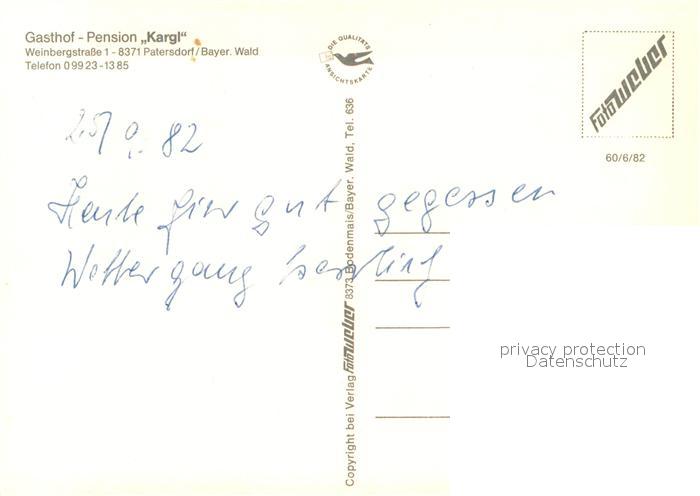 Gasthof - Pension „Kargl“
Weinbergstraße 1 - 8371 Patersdorf/Bayer. Wald
Telefon 09923-1385
DIE QUALITÄTS ANSICHTSKARTE
Foto Weber
60/6/82
82
Heute hier gut gegessen
Wetter ganz
Copyright bei Verlag Foto Weber 8373 Bodenmais/Bayer. Wald, Tel. 636
privacy protection
Datenschutz